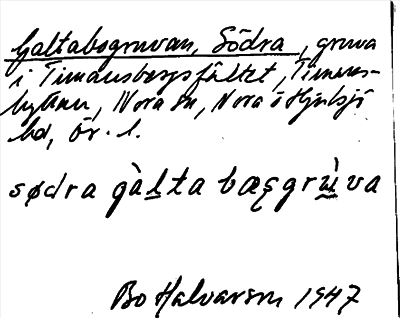 Galtabogruvan, Södra, gruva
i Timansbergsfältet, Timans-
hyttan, Nora sn, Nora o Hjulsjö
bd, Ör. l.
södra gàlta bæsgrùva
Bo Halvarson 1947